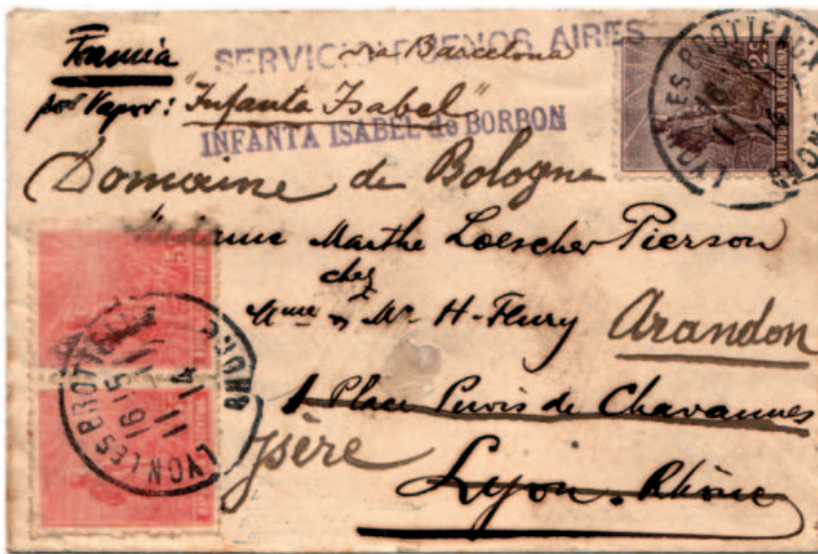 Francia via Barcelona
SERVICIO BUENOS AIRES
por Vapor: "Infanta Isabel"
INFANTA ISABEL de BORBON
Domaine de Bologne
Madame Marthe Loescher Pierson
chez
Mme & Mr H. Fleury Arandon
1 Place Puvis de Chavannes
Isère
Lyon. Rhône
LYON LES BROTTEAUX RHONE
16 15
11 11
14
LYON LES BROTTEAUX RHONE
16 15
11 11
14
2c
REPUBLICA ARGENTINA
5